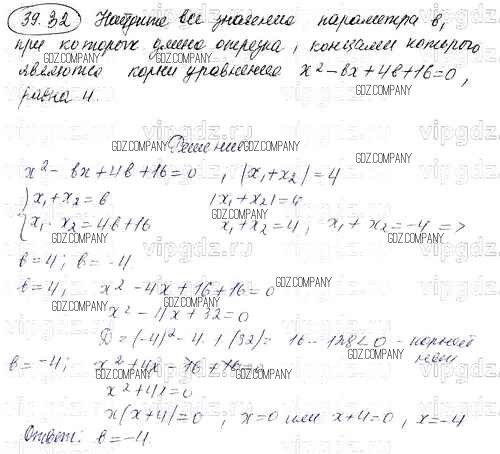 39.32 Найдите все значения параметра в,
при которых длина отрезка, концами которого
являются корни уравнения x² - вx + 4в + 16 = 0,
равна 4.
Решение
x² - вx + 4в + 16 = 0, |x₁ + x₂| = 4
{x₁ + x₂ = в |x₁ + x₂| = 4
{x₁ · x₂ = 4в + 16 x₁ + x₂ = 4; x₁ + x₂ = -4 =>
в = 4; в = -4
в = 4, x² - 4x + 16 + 16 = 0
x² - 4x + 32 = 0
D = (-4)² - 4 · 1 · (32) = 16 - 128 < 0 - корней нет
в = -4; x² + 4x - 16 + 16 = 0
x² + 4x = 0
x(x + 4) = 0, x = 0 или x + 4 = 0, x = -4
Ответ: в = -4.